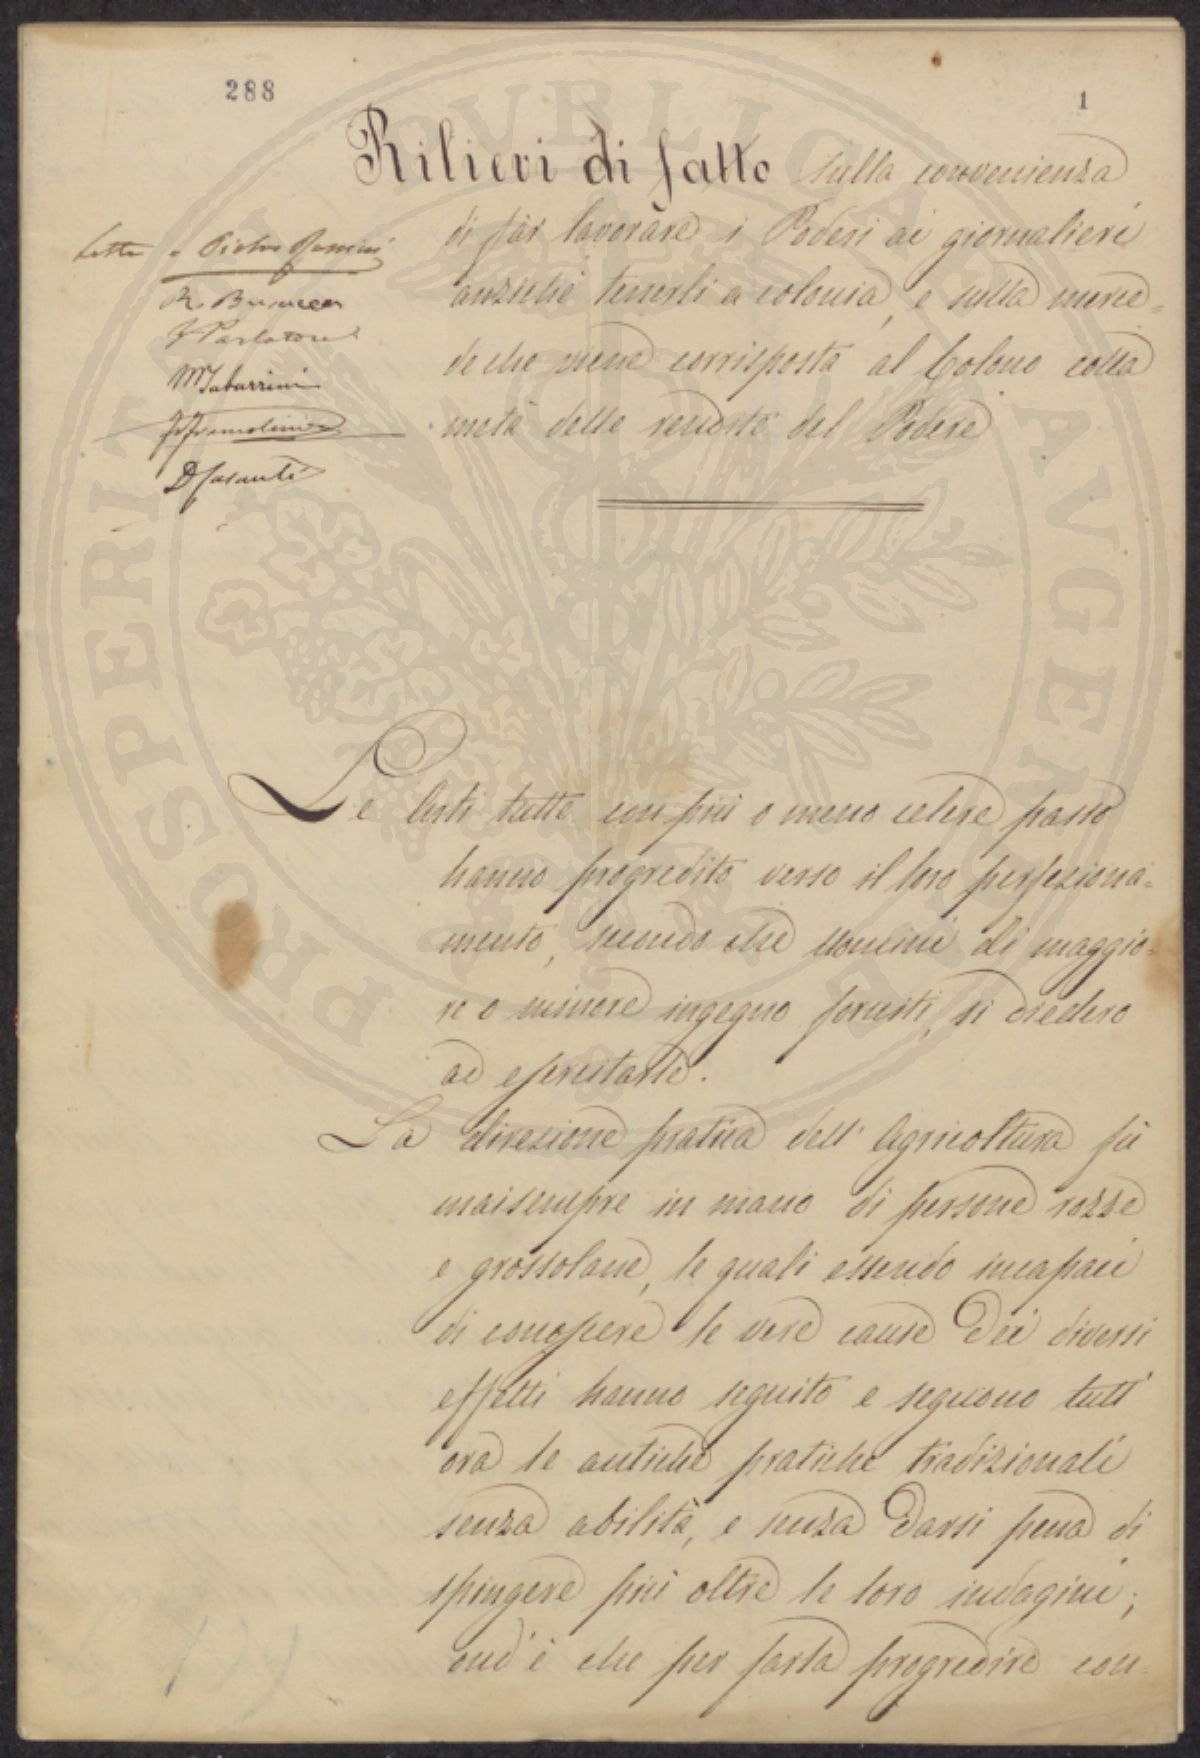 288
1
Rilievi di fatto sulla convenienza
di fàr lavorare i Poderi ai giornalieri
anzichè tenerli a colonia, e sulla merce-
de che viene corrisposta al Colono colla
metà delle rendite del Podere
Letta - Pietro
R. Busacca
F Parlatore
M Tabarrini
D Casanti
Le Arti tutte con più o meno celere passo
hanno progredito verso il loro perfeziona-
mento, secondo che uomini di maggio-
re o minore ingegno forniti, si diedero
ad esercitarle.
La direzione pratica dell' Agricoltura fù
maisempre in mano di persone rozze
e grossolane, le quali essendo incapaci
di conoscere le vere cause dei diversi
effetti hanno seguito e seguono tutt'
ora le antiche pratiche tradizionali
senza abilità, e senza darsi pena di
spingere più oltre le loro indagini;
ond' è che per farla progredire con-
PROSPERITATI PVBLICAE AVGENDAE